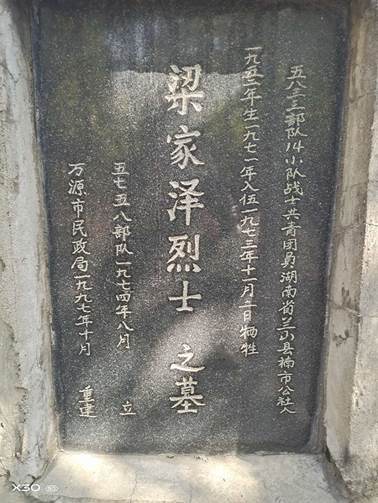 五八三三部队14小队战士共青团员湖南省兰山县楠市公社人
一九五二年生一九七一年入伍一九七三年十一月 日牺牲
梁家泽烈士之墓
五七五八部队一九七四年八月 立
万源市民政局一九九七年十月 重建
X30